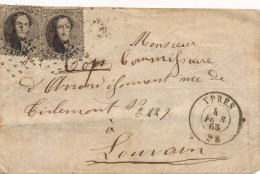 Monsieur
Cops Commissaire
d'Arrondissement rue de
Tirlemont No 227
à
Louvain
YPRES
4
65